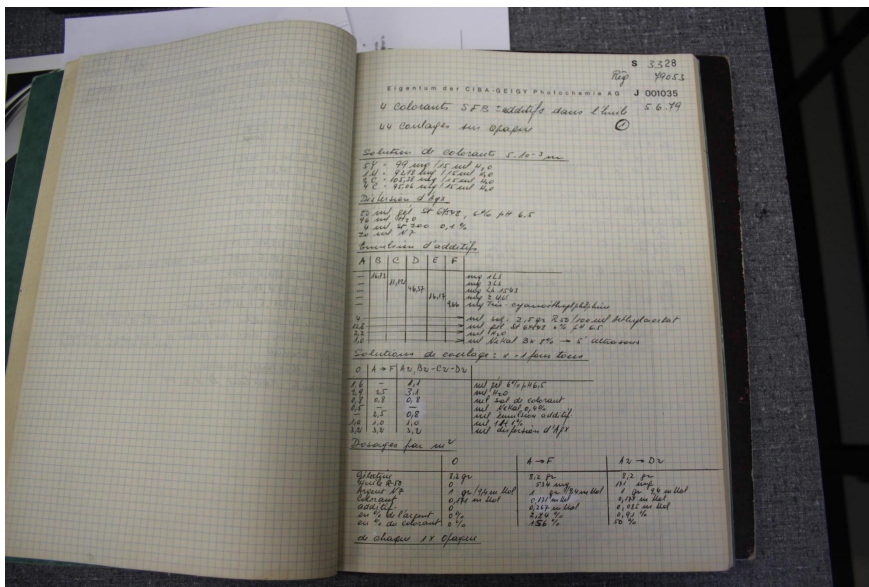 S 3328
79053
Eigentum der CIBA-GEIGY Photochemie AG J 001035
4 colorants SFB = additifs dans l'huile 5.6.79
44 coulages sur opaque 1
Solution de colorants 5.10-3 m
5Y = 99 mg / 15 ml H2O
1M = 92,18 mg / 15 ml H2O
2C = 105,38 mg / 15 ml H2O
4C = 95,06 mg / 15 ml H2O
Dispersion d'AgX
ml gel St 67848, 6% pH 6.5
ml H2O
4 ml St 200 0,1%
20 ml
Emulsion d'additifs
A B C D E F
mg
mg
mg 1543
mg
mg Tris-cyanoéthylphosphine
4 ml sol. 2,5 gr R50/100 ml éthylacetat
ml gel St 67848 6% pH 6.5
2,2 ml H2O
1,0 ml Nekal BX 8% → 5' ultrasons
Solutions de coulage: 1 + 1 fois tous
0 A → F A2, B2 - C2 - D2
1,6 - 1,1 ml gel 6% pH 6,5
2,9 2,5 3,1 ml H2O
0,8 0,8 0,8 ml sol de colorant
0,5 - - ml Nekal 0,4%
- 2,5 0,8 ml émulsion additif
1,0 1,0 1,0 ml 1%
3,2 3,2 3,2 ml dispersion d'AgX
Dosages par m2
0 A → F A2 → D2
Gélatine 8,2 gr 8,2 gr 8,2 gr
Huile R-50 0 534 mg 171 mg
Argent 1 gr / 9,4 m Mol 1 gr 9.4 m Mol 1 gr 9,4 m Mol
Colorant m Mol m Mol m Mol
additif 0 0,267 m Mol 0,085 m Mol
en % de l'argent 0% 2,84 % 0,91 %
en % de colorant 0% 156 % 50 %
de chaque 1x Opaque